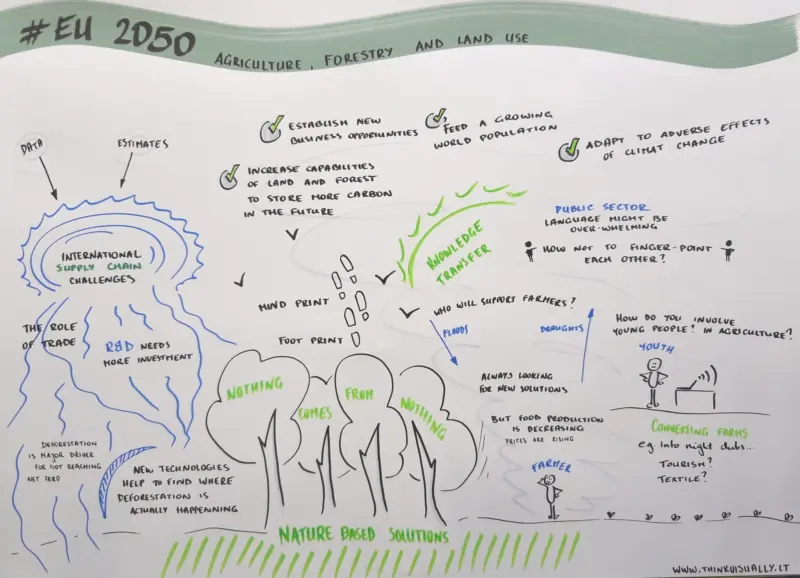 #EU 2050
AGRICULTURE, FORESTRY AND LAND USE
DATA
ESTIMATES
INTERNATIONAL
SUPPLY CHAIN
CHALLENGES
THE ROLE
OF TRADE
R&D NEEDS
MORE INVESTMENT
DEFORESTATION
IS MAJOR DRIVER
FOR NOT REACHING
NET ZERO
NEW TECHNOLOGIES
HELP TO FIND WHERE
DEFORESTATION IS
ACTUALLY HAPPENNING
ESTABLISH NEW
BUSINESS OPPORTUNITIES
FEED A GROWING
WORLD POPULATION
ADAPT TO ADVERSE EFFECTS
OF CLIMAT CHANGE
INCREASE CAPABILITIES
OF LAND AND FOREST
TO STORE MORE CARBON
IN THE FUTURE
MIND PRINT
FOOT PRINT
KNOWLEDGE
TRANSFER
PUBLIC SECTOR
LANGUAGE MIGHT BE
OVER-WHELMING
HOW NOT TO FINGER-POINT
EACH OTHER?
WHO WILL SUPPORT FARMERS?
FLOODS
DRAUGHTS
ALWAYS LOOKING
FOR NEW SOLUTIONS
BUT FOOD PRODUCTION
IS DECREASING
PRICES ARE RISING
FARMER
HOW DO YOU INVOLVE
YOUNG PEOPLE? IN AGRICULTURE?
YOUTH
CONVERTING FARMS
e.g. Into night clubs...
TOURISM?
TEXTILE?
NOTHING
COMES
FROM
NOTHING
NATURE BASED SOLUTIONS
WWW.THINKVISUALLY.LT